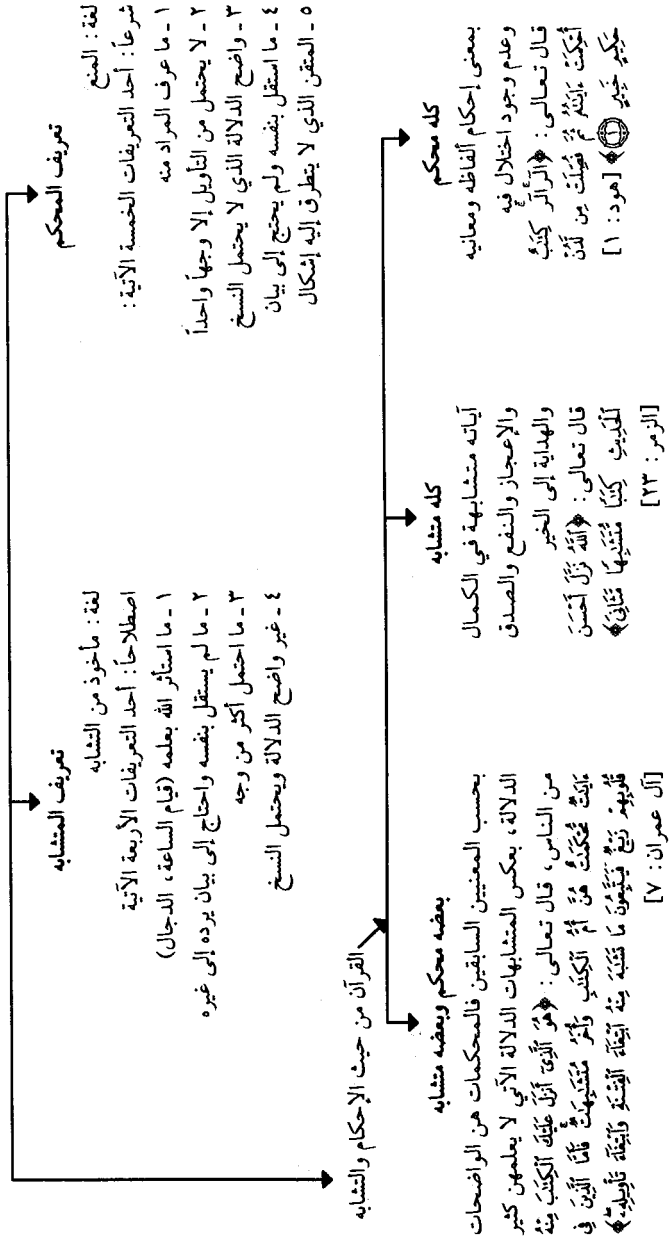 تعريف المحكم
لغة: المنع
شرعاً: أحد التعريفات الخمسة الآتية:
١ ـ ما عرف المراد منه
٢ ـ لا يحتمل من التأويل إلا وجهاً واحداً
٣ ـ واضح الدلالة الذي لا يحتمل النسخ
٤ ـ ما استقل بنفسه ولم يحتج إلى بيان
٥ ـ المتقن الذي لا يتطرق إليه إشكال
تعريف المتشابه
لغة: مأخوذ من التشابه
اصطلاحاً: أحد التعريفات الأربعة الآتية
١ ـ ما استأثر الله بعلمه (قيام الساعة، الدجال)
٢ ـ ما لم يستقل بنفسه واحتاج إلى بيان يرده إلى غيره
٣ ـ ما احتمل أكثر من وجه
٤ ـ غير واضح الدلالة ويحتمل النسخ
القرآن من حيث الإحكام والتشابه
كله محكم
بمعنى إحكام ألفاظه ومعانيه
وعدم وجود اختلال فيه
قال تعالى: ﴿الٓرۚ كِتَٰبٌ
أُحۡكِمَتۡ ءَايَٰتُهُۥ ثُمَّ فُصِّلَتۡ مِن لَّدُنۡ
حَكِيمٍ خَبِيرٍ ١﴾ [هود: ١]
كله متشابه
آياته متشابهة في الكمال
والإعجاز والنفع والصدق
والهداية إلى الخير
قال تعالى: ﴿ٱللَّهُ نَزَّلَ أَحۡسَنَ
ٱلۡحَدِيثِ كِتَٰبٗا مُّتَشَٰبِهٗا مَّثَانِيَ﴾
[الزمر: ٢٣]
بعضه محكم وبعضه متشابه
بحسب المعنيين السابقين فالمحكمات هن الواضحات
الدلالة، بعكس المتشابهات الدلالة الآتي لا يعلمهن كثير
من الناس، قال تعالى: ﴿هُوَ ٱلَّذِيٓ أَنزَلَ عَلَيۡكَ ٱلۡكِتَٰبَ مِنۡهُ
ءَايَٰتٞ مُّحۡكَمَٰتٌ هُنَّ أُمُّ ٱلۡكِتَٰبِ وَأُخَرُ مُتَشَٰبِهَٰتٞۖ فَأَمَّا ٱلَّذِينَ فِي
قُلُوبِهِمۡ زَيۡغٞ فَيَتَّبِعُونَ مَا تَشَٰبَهَ مِنۡهُ ٱبۡتِغَآءَ ٱلۡفِتۡنَةِ وَٱبۡتِغَآءَ تَأۡوِيلِهِۦۖ﴾
[آل عمران: ٧]